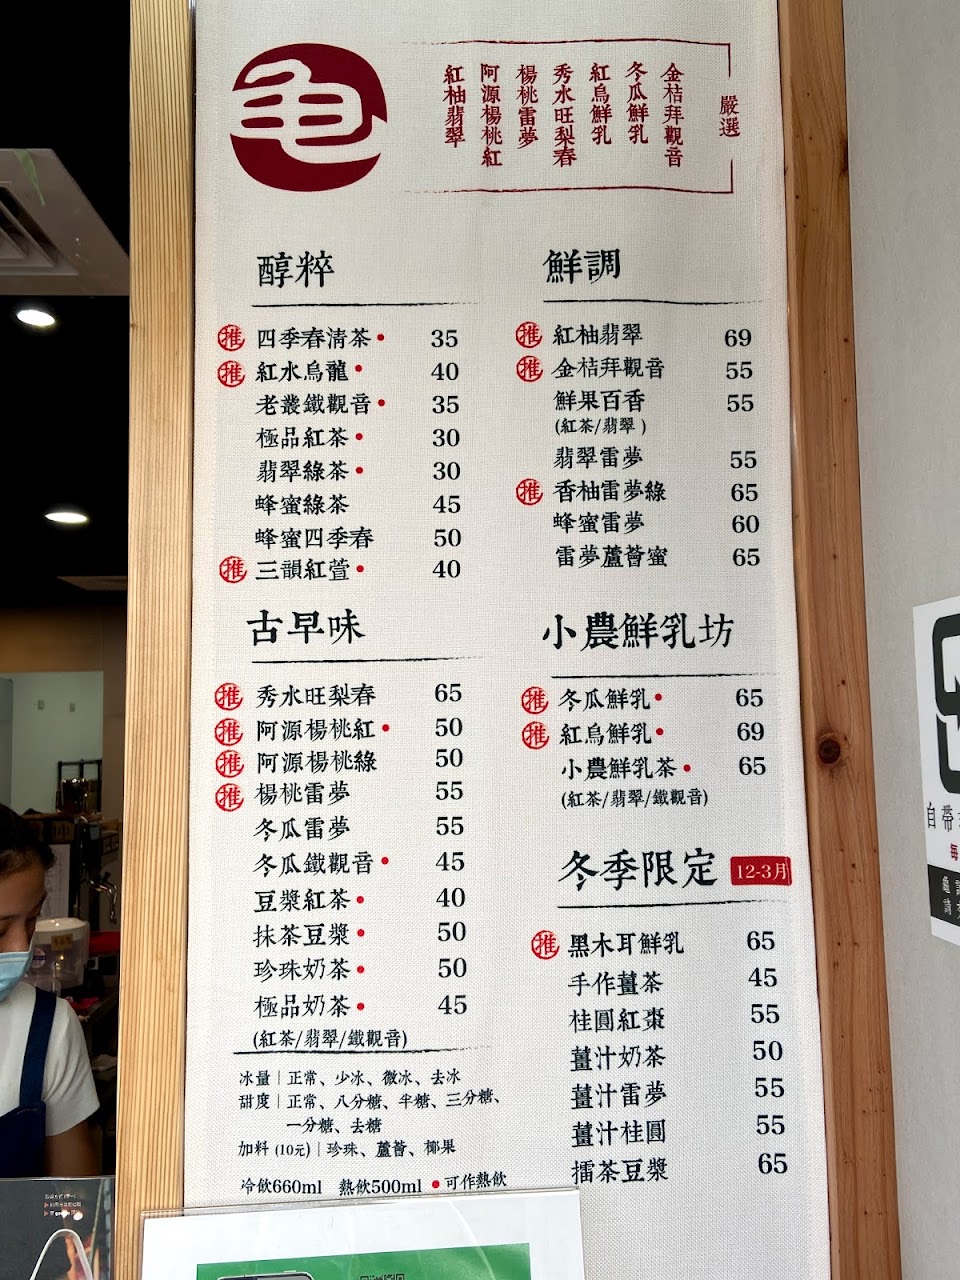 龜
嚴選
金桔拜觀音
冬瓜鮮乳
紅烏鮮乳
秀水旺梨春
楊桃雷夢
阿源楊桃紅
紅柚翡翠
醇粹
推 四季春清茶• 35
推 紅水烏龍• 40
老叢鐵觀音• 35
極品紅茶• 30
翡翠綠茶• 30
蜂蜜綠茶 45
蜂蜜四季春 50
推 三韻紅萱• 40
古早味
推 秀水旺梨春 65
推 阿源楊桃紅• 50
推 阿源楊桃綠 50
推 楊桃雷夢 55
冬瓜雷夢 55
冬瓜鐵觀音• 45
豆漿紅茶• 40
抹茶豆漿• 50
珍珠奶茶• 50
極品奶茶• 45
(紅茶/翡翠/鐵觀音)
冰量｜正常、少冰、微冰、去冰
甜度｜正常、八分糖、半糖、三分糖、
一分糖、去糖
加料 (10元)｜珍珠、蘆薈、椰果
冷飲660ml 熱飲500ml •可作熱飲
鮮調
推 紅柚翡翠 69
推 金桔拜觀音 55
鮮果百香 55
(紅茶/翡翠)
翡翠雷夢 55
推 香柚雷夢綠 65
蜂蜜雷夢 60
雷夢蘆薈蜜 65
小農鮮乳坊
推 冬瓜鮮乳• 65
推 紅烏鮮乳• 69
小農鮮乳茶• 65
(紅茶/翡翠/鐵觀音)
冬季限定 12-3月
推 黑木耳鮮乳 65
手作薑茶 45
桂圓紅棗 55
薑汁奶茶 50
薑汁雷夢 55
薑汁桂圓 55
擂茶豆漿 65
自帶
每